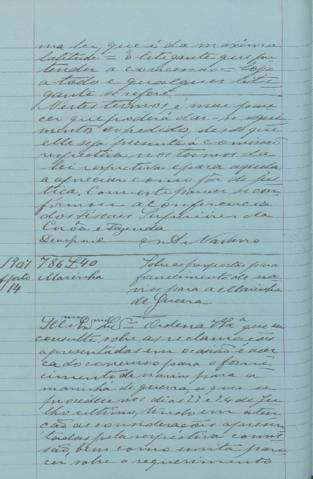 ma lei, que é da maxima
latitude = o litigante que pre
tender a concessão = Logo
a todo e qualquer liti-
gante se refere.
Nestes termos é meu pare
cer que poderá dar-se segui
mento ao pedido, desde que
elle seja presente á comissão
respectiva nos termos da
lei respectiva e para essa
a apreciar como fôr de jus
tiça. Com este parecer se con
formou a conferencia
dos fiscaes superiores da
Corôa e Fazenda
Deus gue
1907 786 L40 Sobre as propostas para
Agosto Marinha fornecimento de na
14 vios para a Marinha
de Guerra
Ordena V. Exª que eu
consulte sobre as reclamações
apresentadas em ocasião e acer
ca do concurso para o forne
cimento de navios para a
marinha de guerra a que se
procedeu nos dias 23 e 24 de Ju
lho ultimo, tendo em aten
ção as considerações apresen
tadas pela respectiva comis
são, bem como emita pare
cer sobre o requerimento